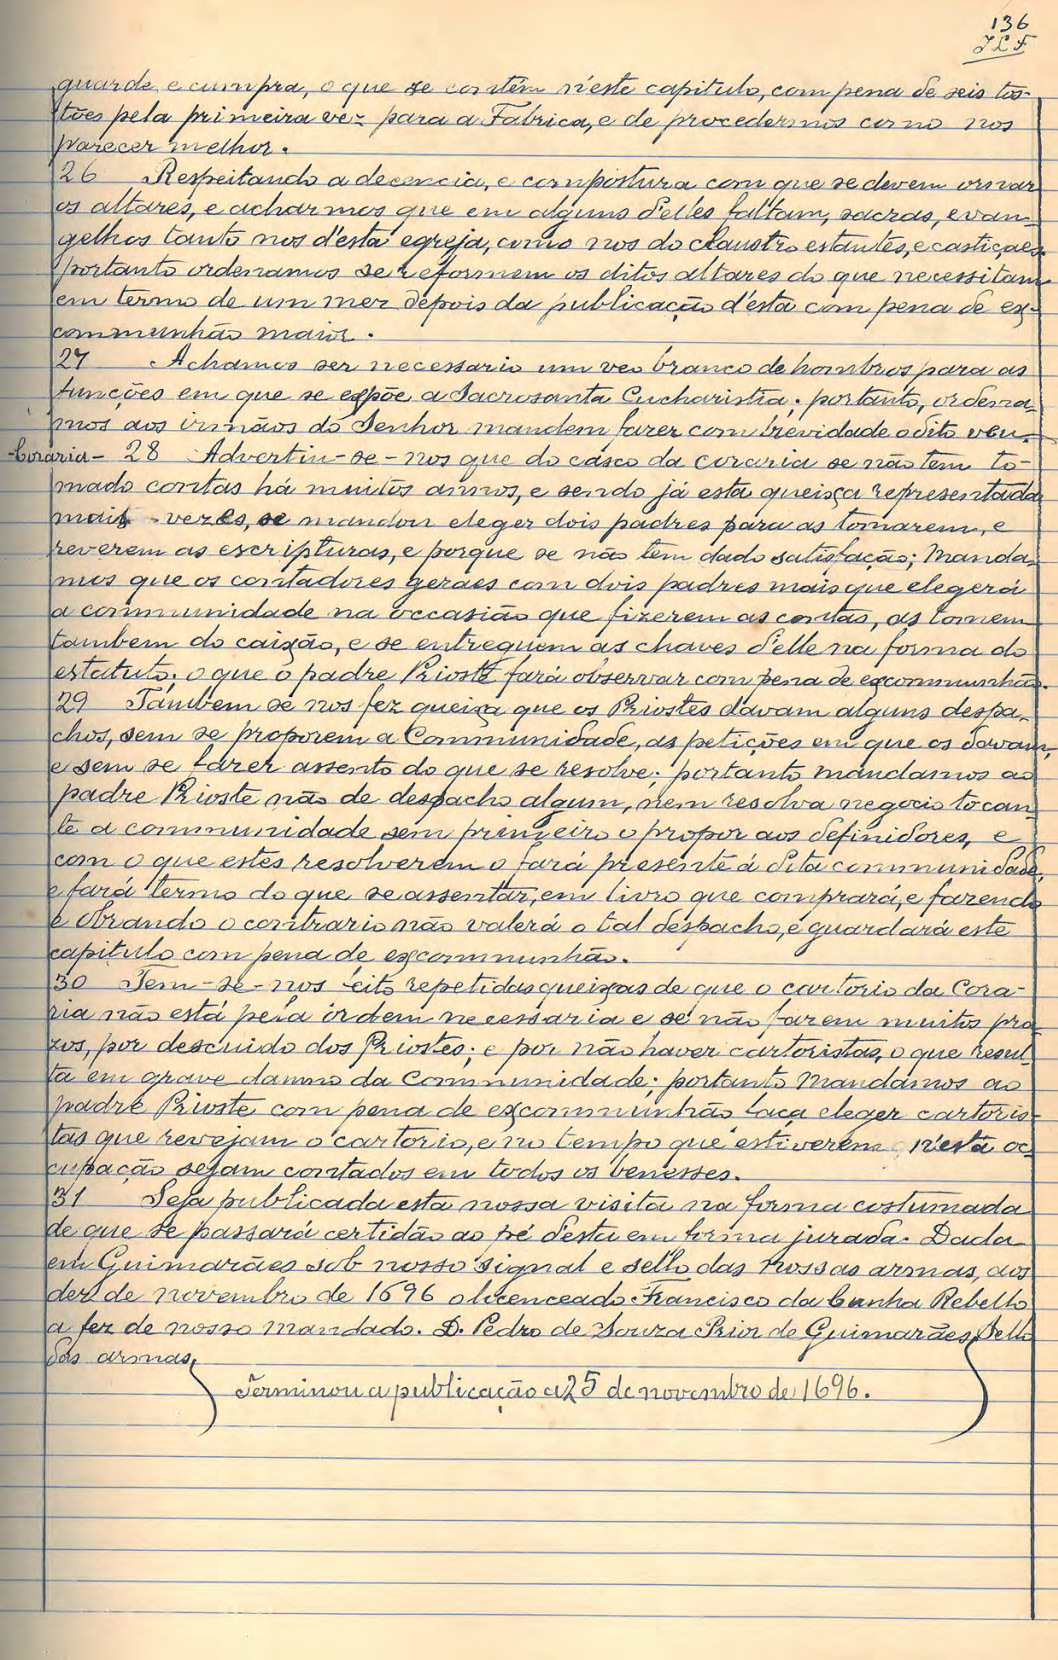 136
J L F
guarde e cumpra, o que se contêm n'este capitulo, com pena de seis tos-
tões pela primeira vez para a Fabrica, e de procedermos como nos
parecer melhor.
26 Respeitando a decencia, e compostura com que se devem ornar
os altares, e acharmos que em alguns d'elles faltam, sacras, evan-
gelhos tanto nos d'esta egreja, como nos do claustro estantes, e castiçaes
portanto ordenamos se reformem os ditos altares do que necessitam
em termo de um mez depois da publicação d'esta com pena de ex-
communhão maior.
27 Achamos ser necessario um veo branco de hombros para as
funcções em que se expõe a Sacrosanta Eucharistia; portanto, ordena-
mos aos irmãos do Senhor mandem fazer com brevidade o dito veu.
-Coraria- 28 Advertiu-se-nos que do casco da coraria se não têm to-
mado contas há muitos annos, e sendo já esta queixa representada
mais vezes, se mandou eleger dois padres para as tomarem, e
reverem as escripturas, e porque se não tem dado satisfação; Manda-
mos que os contadores geraes com dois padres mais que elegerá
a communidade na occasião que fizerem as contas, as tomem
tambem do caixão, e se entreguem as chaves d'elle na forma do
estatuto; o que o padre Prioste fará observar com pena de excommunhão.
29 Tambem se nos fez queixa que os Priostes davam alguns despa-
chos, sem se proporem a Communidade, as petições em que os davam,
e sem se fazer assento do que se resolve; portanto mandamos ao
padre Prioste não de despacho algum, nem resolva negocio tocan-
te a communidade sem primeiro o propor aos definidores, e
com o que estes resolverem o fará presente á dita communidade,
e fará termo do que se assentar, em livro que comprará, e fazendo
e obrando o contrario não valerá o tal despacho, e guardará este
capitulo com pena de excommunhão.
30 Tem-se-nos feito repetidas queixas de que o cartorio da Cora-
ria não está pela ordem necessaria e se não fazem muitos pra-
zos, por descuido dos Priostes; e por não haver cartoristas, o que resul-
ta em grave damno da Communidade; portanto Mandamos ao
padre Prioste com pena de excommunhão faça eleger cartoris-
tas que revejam o cartorio, e no tempo que estiverem n'esta oc-
cupação sejam contados em todos os benesses.
31 Seja publicada esta nossa visita na forma costumada
de que se passará certidão ao pé desta em forma jurada. Dada
em Guimarães sob nosso signal e sello das nossas armas, aos
dez de novembro de 1696 o licenceado Francisco da Cunha Rebello
a fez de nosso mandado. D. Pedro de Souza Prior de Guimarães, Sello
das armas,
Terminou a publicação a 25 de novembro de 1696.